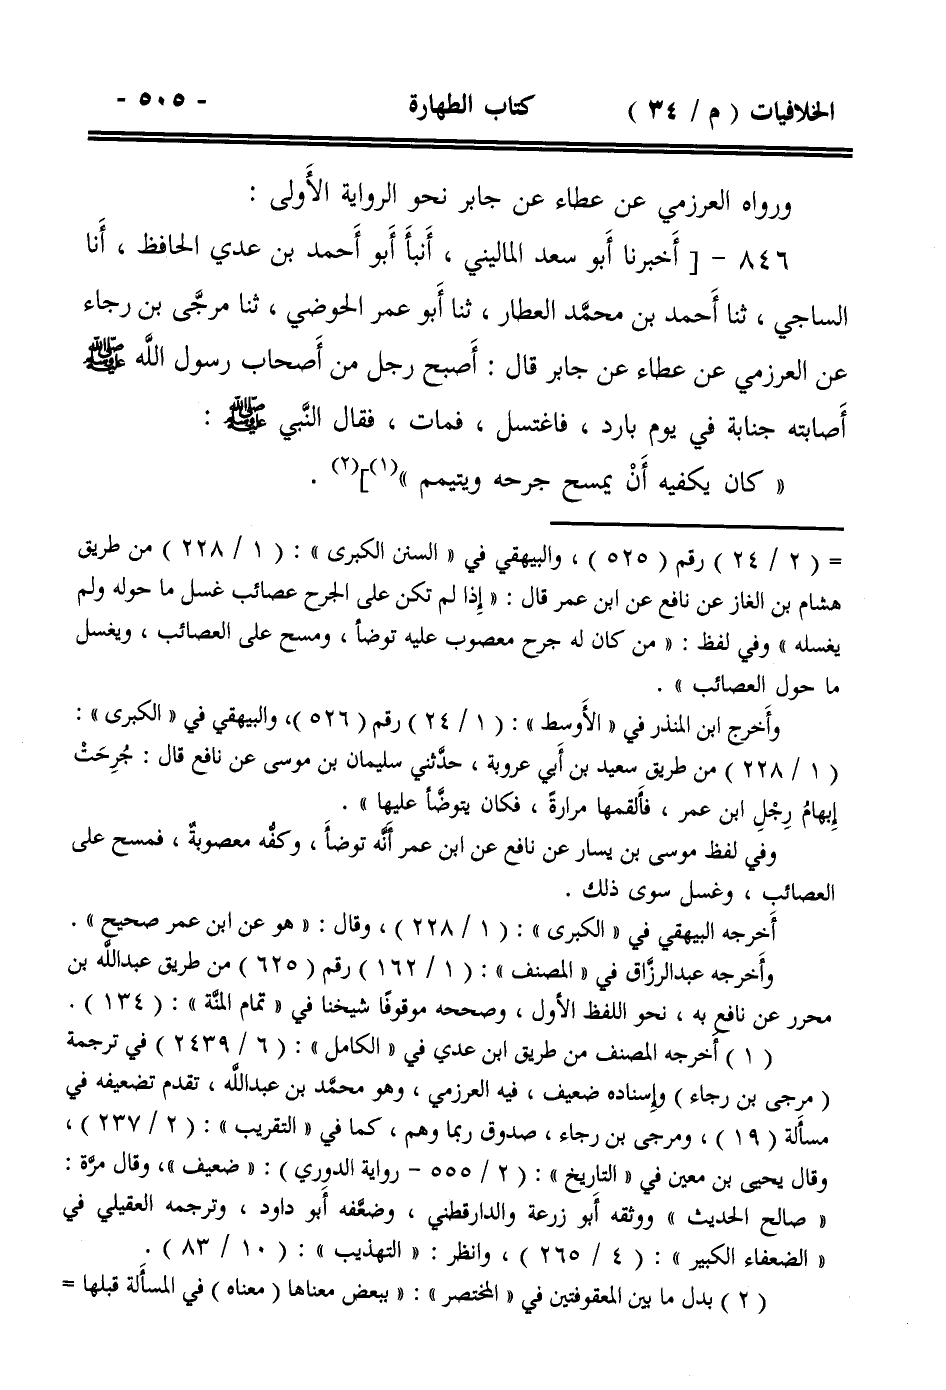 الخلافيات ( م / ٣٤ ) كتاب الطهارة - ٥٠٥ -
ورواه العرزمي عن عطاء عن جابر نحو الرواية الأَولى :
٨٤٦ - [ أَخبرنا أَبو سعد الماليني ، أَنبأَ أَبو أَحمد بن عدي الحافظ ، أَنا
الساجي ، ثنا أَحمد بن محمَّد العطار ، ثنا أَبو عمر الحوضي ، ثنا مرجَّى بن رجاء
عن العرزمي عن عطاء عن جابر قال : أَصبح رجل من أَصحاب رسول اللَّه ﷺ
أَصابته جنابة في يوم بارد ، فاغتسل ، فمات ، فقال النَّبي ﷺ :
« كان يكفيه أَنْ يمسح جرحه ويتيمم »(١)](٢) .
= ( ٢ / ٢٤ ) رقم ( ٥٢٥ ) ، والبيهقي في « السنن الكبرى » : ( ١ / ٢٢٨ ) من طريق
هشام بن الغاز عن نافع عن ابن عمر قال : « إِذا لم تكن على الجرح عصائب غسل ما حوله ولم
يغسله » وفي لفظ : « من كان له جرح معصوب عليه توضأ ، ومسح على العصائب ، ويغسل
ما حول العصائب » .
وأَخرج ابن المنذر في « الأَوسط » : ( ١ / ٢٤ ) رقم ( ٥٢٦ )، والبيهقي في « الكبرى » :
( ١ / ٢٢٨ ) من طريق سعيد بن أَبي عروبة ، حدَّثني سليمان بن موسى عن نافع قال : جُرِحَتْ
إِبهامُ رِجْلِ ابن عمر ، فأَلقمها مرارةً ، فكان يتوضَّأ عليها » .
وفي لفظ موسى بن يسار عن نافع عن ابن عمر أَنَّه توضأَ ، وكفُّه معصوبةٌ ، فمسح على
العصائب ، وغسل سوى ذلك .
أَخرجه البيهقي في « الكبرى » : ( ١ / ٢٢٨ ) ، وقال : « هو عن ابن عمر صحيح » .
وأَخرجه عبدالرزَّاق في « المصنف » : ( ١ / ١٦٢ ) رقم ( ٦٢٥ ) من طريق عبداللَّه بن
محرر عن نافع به ، نحو اللفظ الأول ، وصححه موقوفًا شيخنا في « تمام المنَّة » : ( ١٣٤ ) .
( ١ ) أَخرجه المصنف من طريق ابن عدي في « الكامل » : ( ٦ / ٢٤٣٩ ) في ترجمة
( مرجى بن رجاء ) وإِسناده ضعيف ، فيه العرزمي ، وهو محمَّد بن عبداللَّه ، تقدم تضعيفه في
مسأَلة ( ١٩ ) ، ومرجى بن رجاء ، صدوق ربما وهم ، كما في « التقريب » : ( ٢ / ٢٣٧ ) ،
وقال يحيى بن معين في « التاريخ » : ( ٢ / ٥٥٥ - رواية الدوري ) : « ضعيف »، وقال مرَّة :
« صالح الحديث » ووثقه أَبو زرعة والدارقطني ، وضعَّفه أَبو داود ، وترجمه العقيلي في
« الضعفاء الكبير » : ( ٤ / ٢٦٥ ) ، وانظر : « التهذيب » : ( ١٠ / ٨٣ ) .
( ٢ ) بدل ما بين المعقوفتين في « المختصر » : « ببعض معناها ( معناه ) في المسأَلة قبلها =